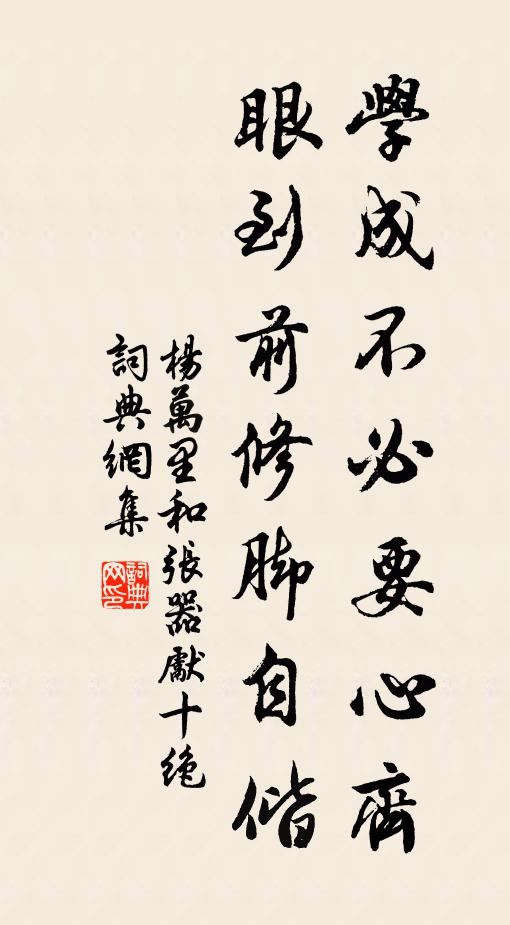 學成不必要心齊
眼到前修脚自偕
楊萬里和張器獻十绝
詞典網集
詞典网印